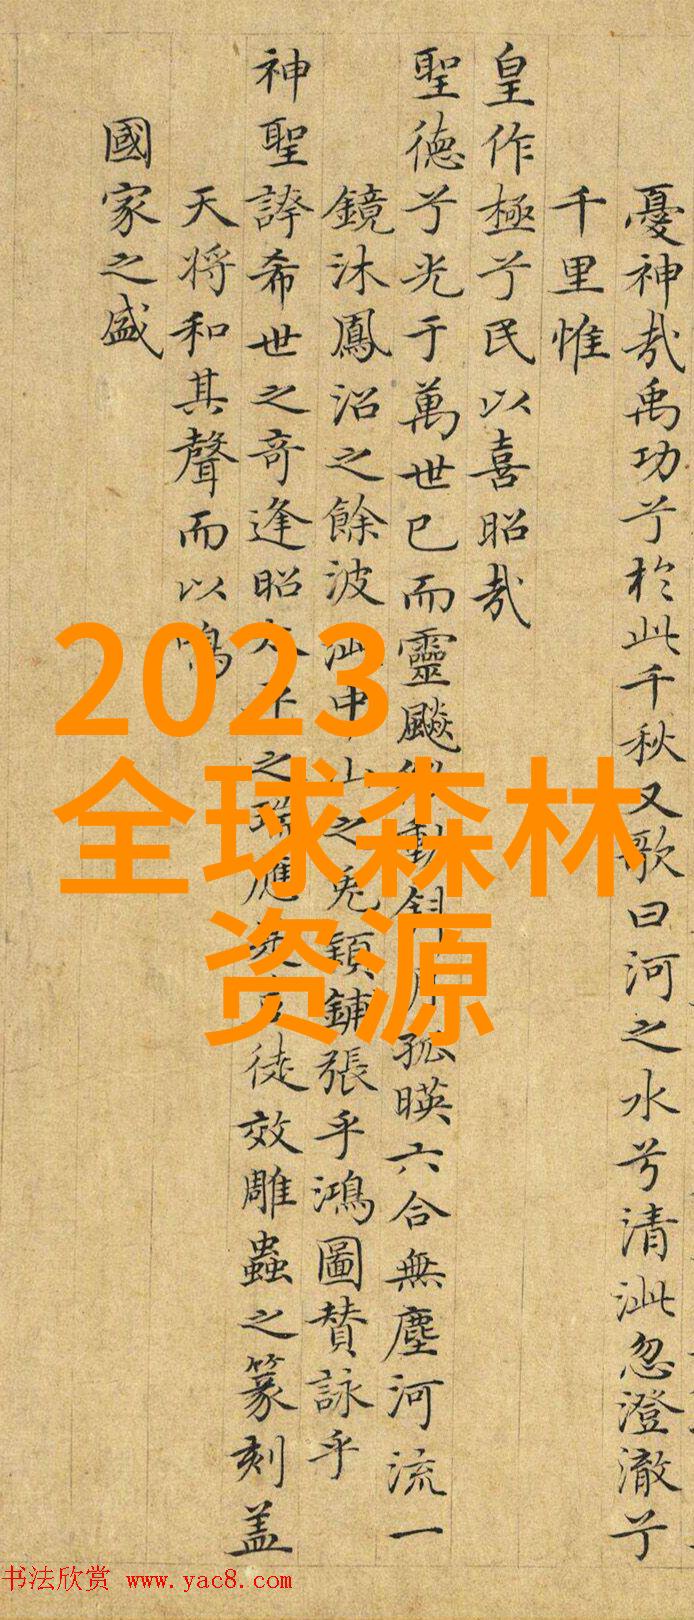 憂神哉禹功兮於此千秋又歌曰河之水兮清泚忽澄澈兮
千里惟
皇作極兮民以喜昭哉
聖德兮光于萬世已而靈飈動斜月孤暎六合無塵河流一
鏡沐鳳沼之餘波泚中山之兎穎鋪張乎鴻圖賛詠乎
神聖誇希世之奇逢昭太平之瑞應徒效雕蟲之篆刻盖
天将和其聲而以鳴
國家之盛
2023
全球森林
资源
书法欣赏 www.yac8.com